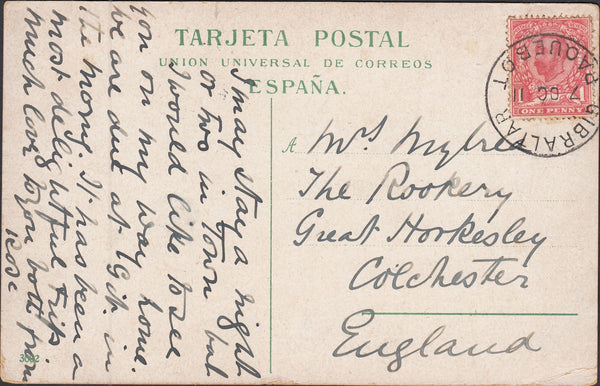 TARJETA POSTAL
UNION UNIVERSAL DE CORREOS
ESPAÑA.
GIBRALTAR
PAQUEBOT
7 OC 11
ONE PENNY
A
Mrs
The Rookery
Great Horkesley
Colchester
England
I may stay a night
or two in Town but
I would like to see
you on my way home.
We are due at Gib. in
the morng. It has been a
most delightful trip
much love to you both from
Rose
3692